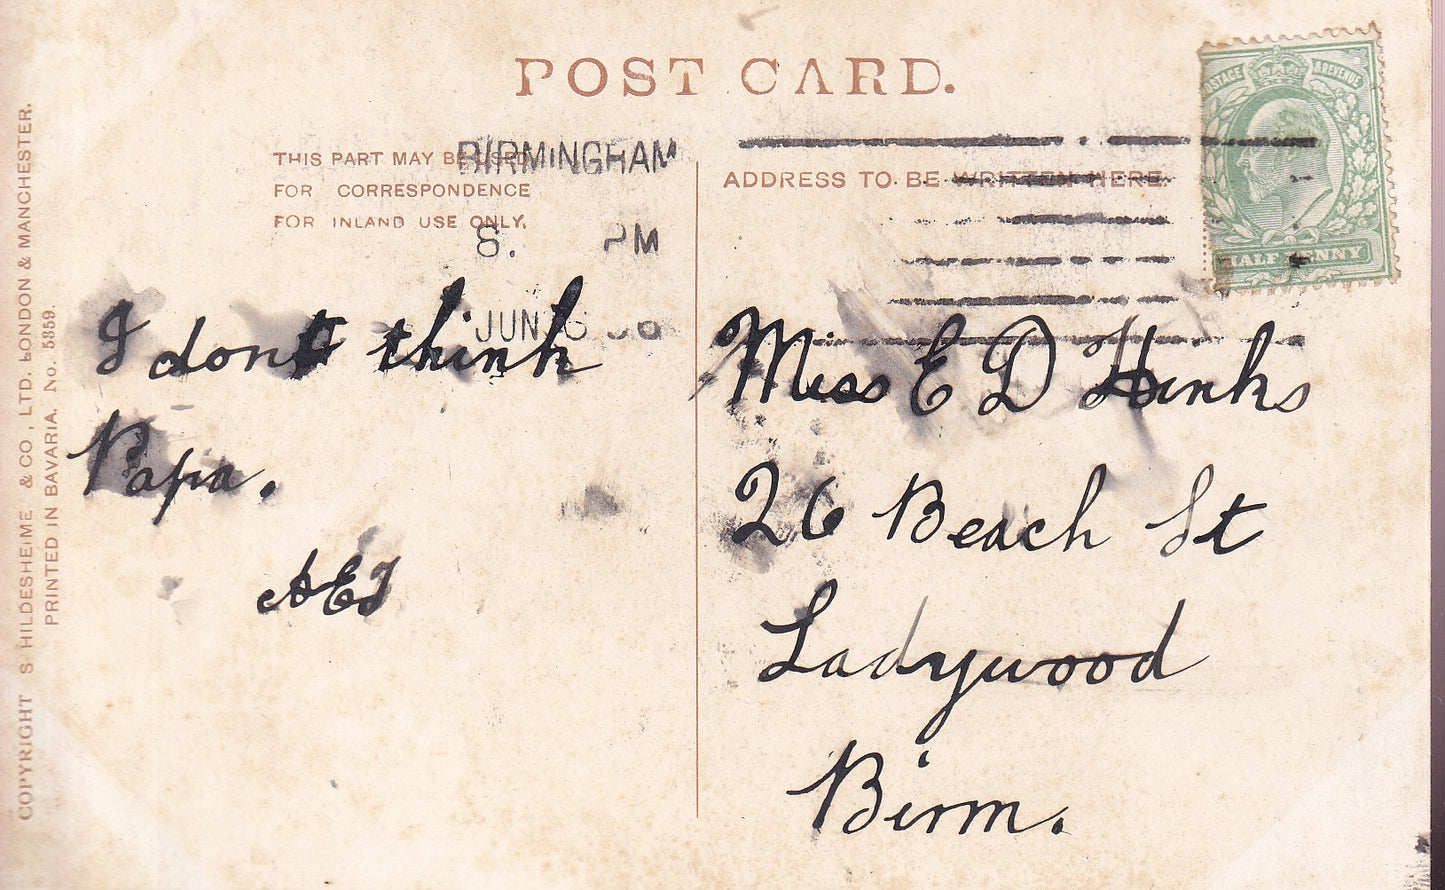 POST CARD.
THIS PART MAY BE USED
FOR CORRESPONDENCE
FOR INLAND USE ONLY.
BIRMINGHAM
8. PM
JUN 6 06
ADDRESS TO BE WRITTEN HERE.
POSTAGE REVENUE
HALF PENNY
I dont think
Papa.
AEJ
Miss E D Hinks
26 Beach St
Ladywood
Birm.
COPYRIGHT S HILDESHEIME & CO, LTD. LONDON & MANCHESTER.
PRINTED IN BAVARIA. No. 5359.